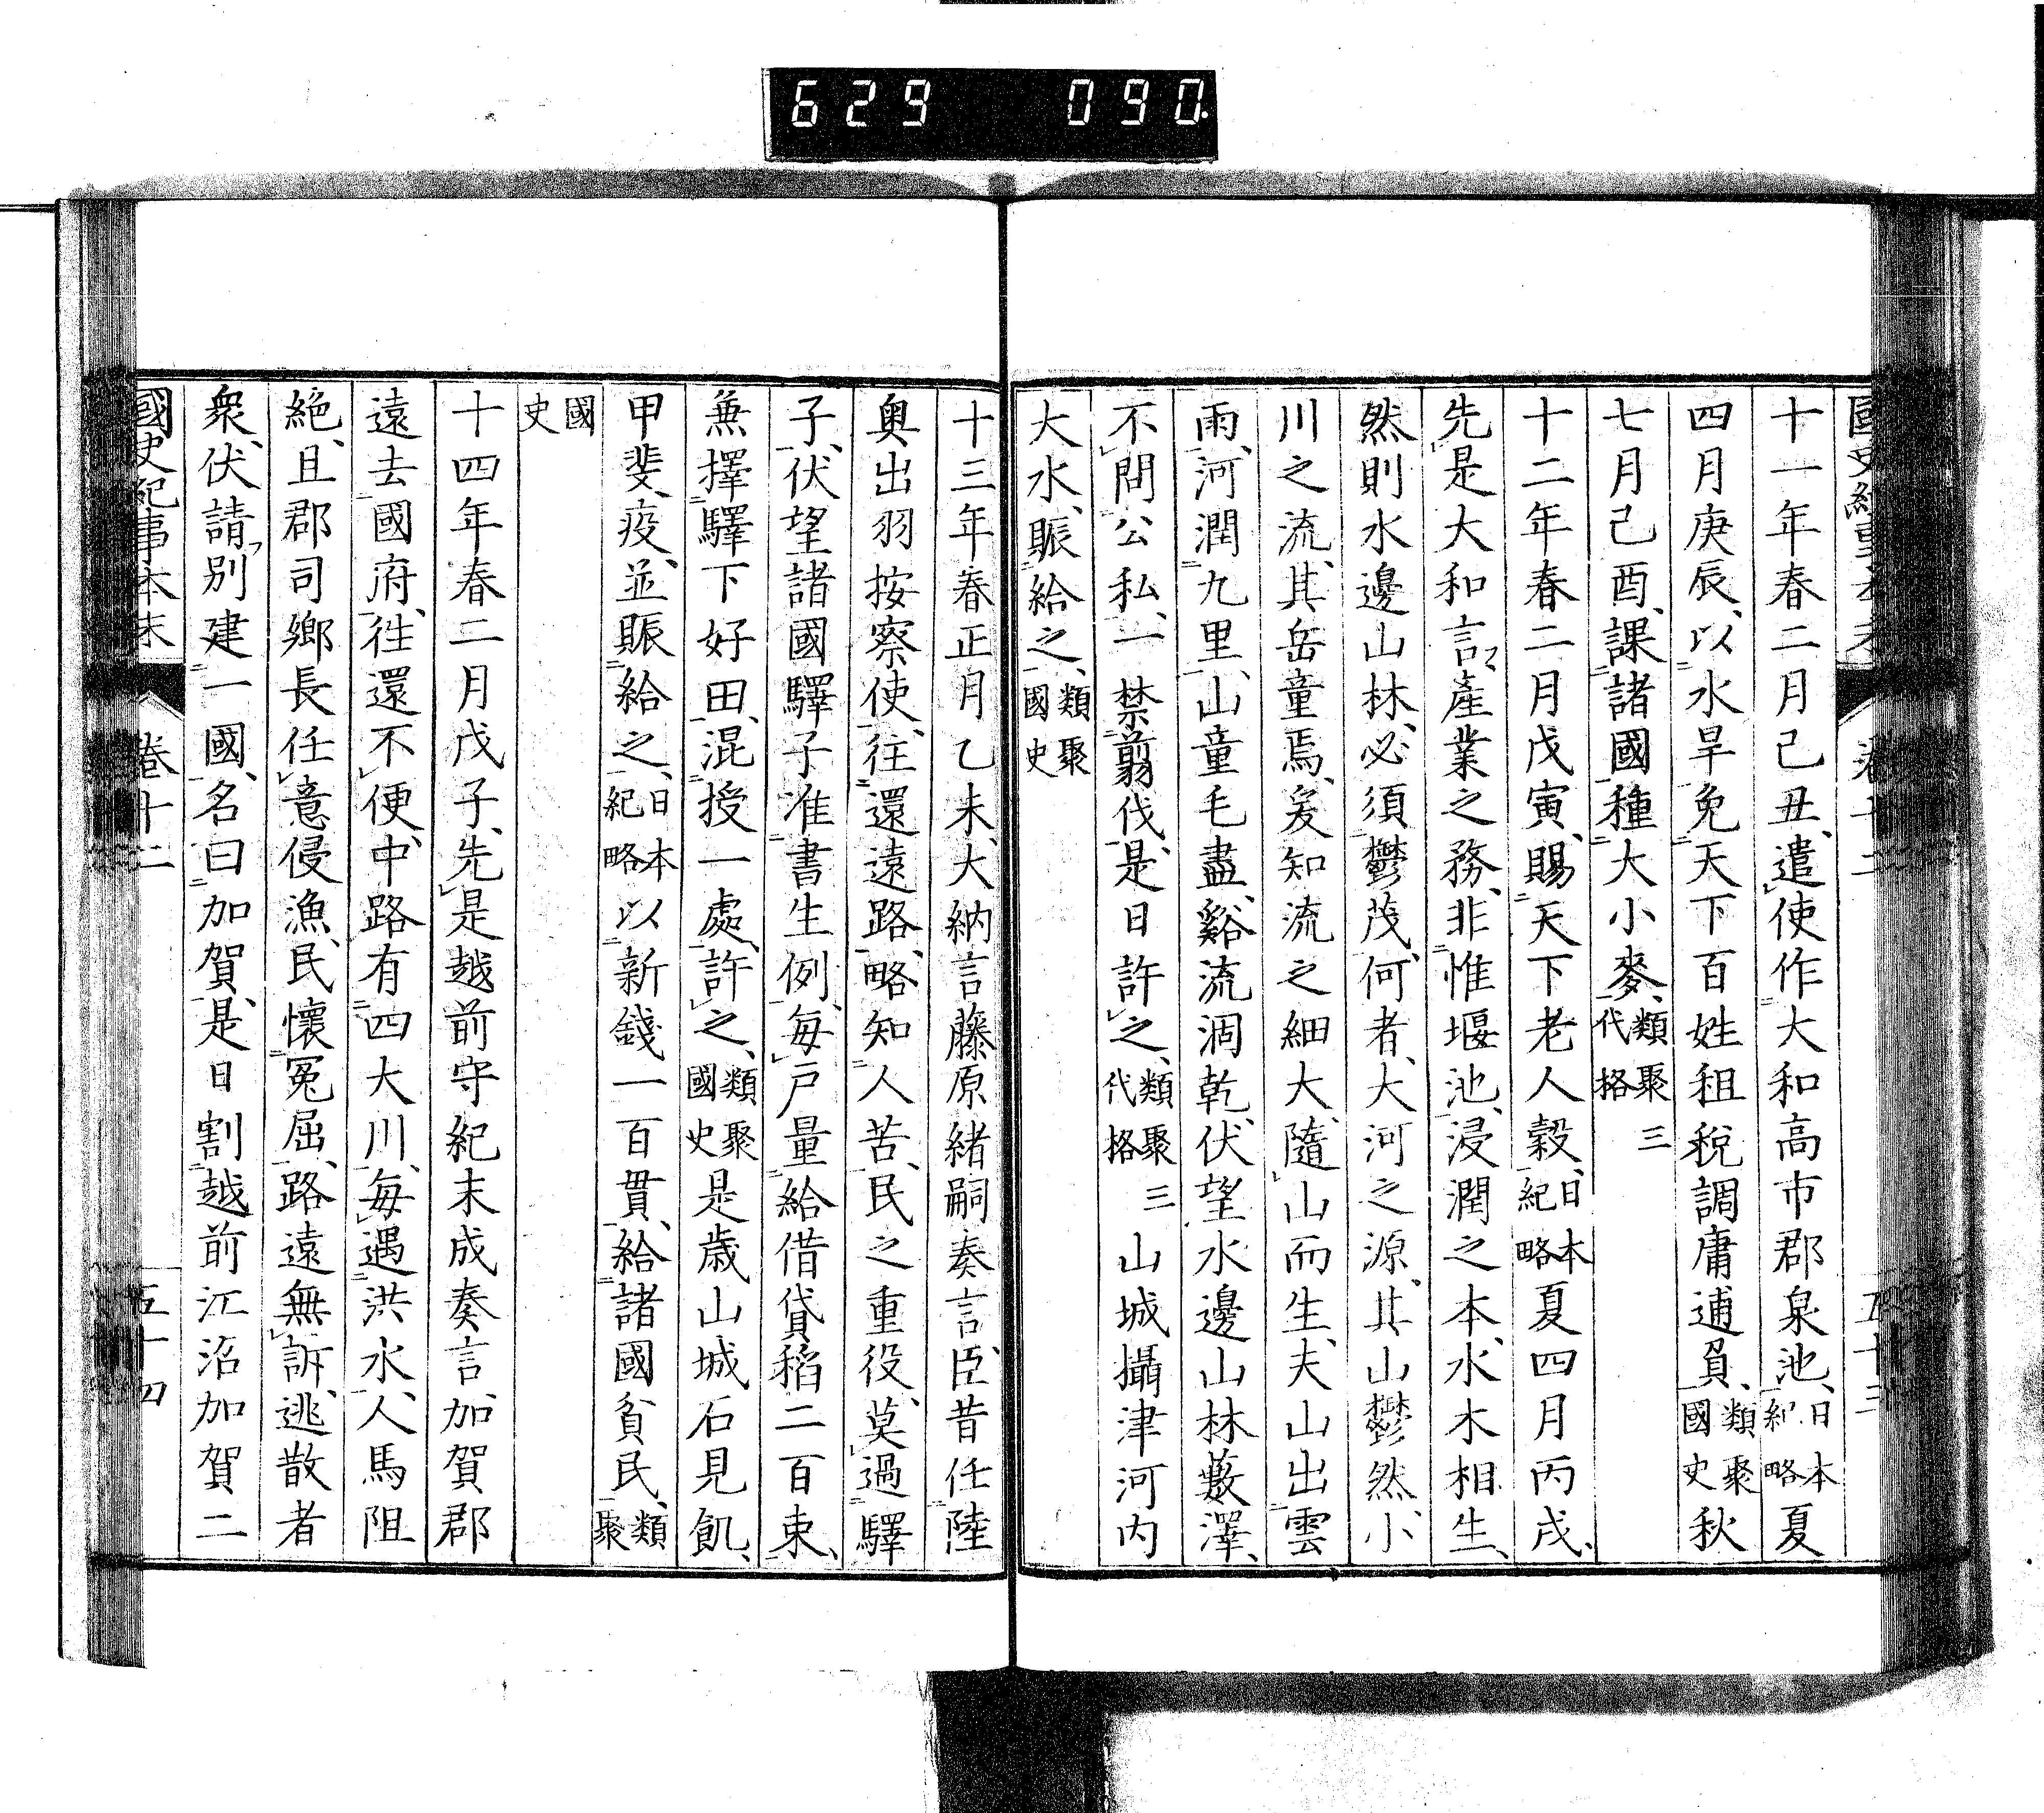 629 090
十一年春二月己丑、遣使作大和高市郡泉池、日本紀略夏
四月庚辰、以水旱免天下百姓租稅調庸逋負、類聚國史秋
七月己酉、課諸國種大小麥、類聚三代格
十二年春二月戊寅、賜天下老人穀、日本紀略夏四月丙戌、
先是大和言、產業之務、非惟堰池、浸潤之本、水木相生、
然則水邊山林、必須鬱茂、何者、大河之源、其山鬱然、小
川之流、其岳童焉、爰知流之細大、隨山而生、夫山出雲
雨、河潤九里、山童毛盡、谿流涸乾、伏望水邊山林藪澤、
不問公私、一禁翦伐、是日許之、類聚三代格山城攝津河內
大水、賑給之、類聚國史
十三年春正月乙未、大納言藤原緒嗣奏言、臣昔任陸
奧出羽按察使、往還遠路、略知人苦、民之重役、莫過驛
子、伏望諸國驛子准書生例、每戶量給借貸稻二百束、
兼擇驛下好田、混授一處、許之、類聚國史是歲山城石見飢、
甲斐疫、並賑給之、日本紀略以新錢一百貫、給諸國貧民、類聚
國史
十四年春二月戊子、先是越前守紀末成奏言、加賀郡
遠去國府、往還不便、中路有四大川、每遇洪水、人馬阻
絕、且郡司鄉長任意侵漁、民懷冤屈、路遠無訴、逃散者
衆、伏請別建一國、名曰加賀、是日割越前江沼加賀二
國史紀事本末 卷十二 五十四